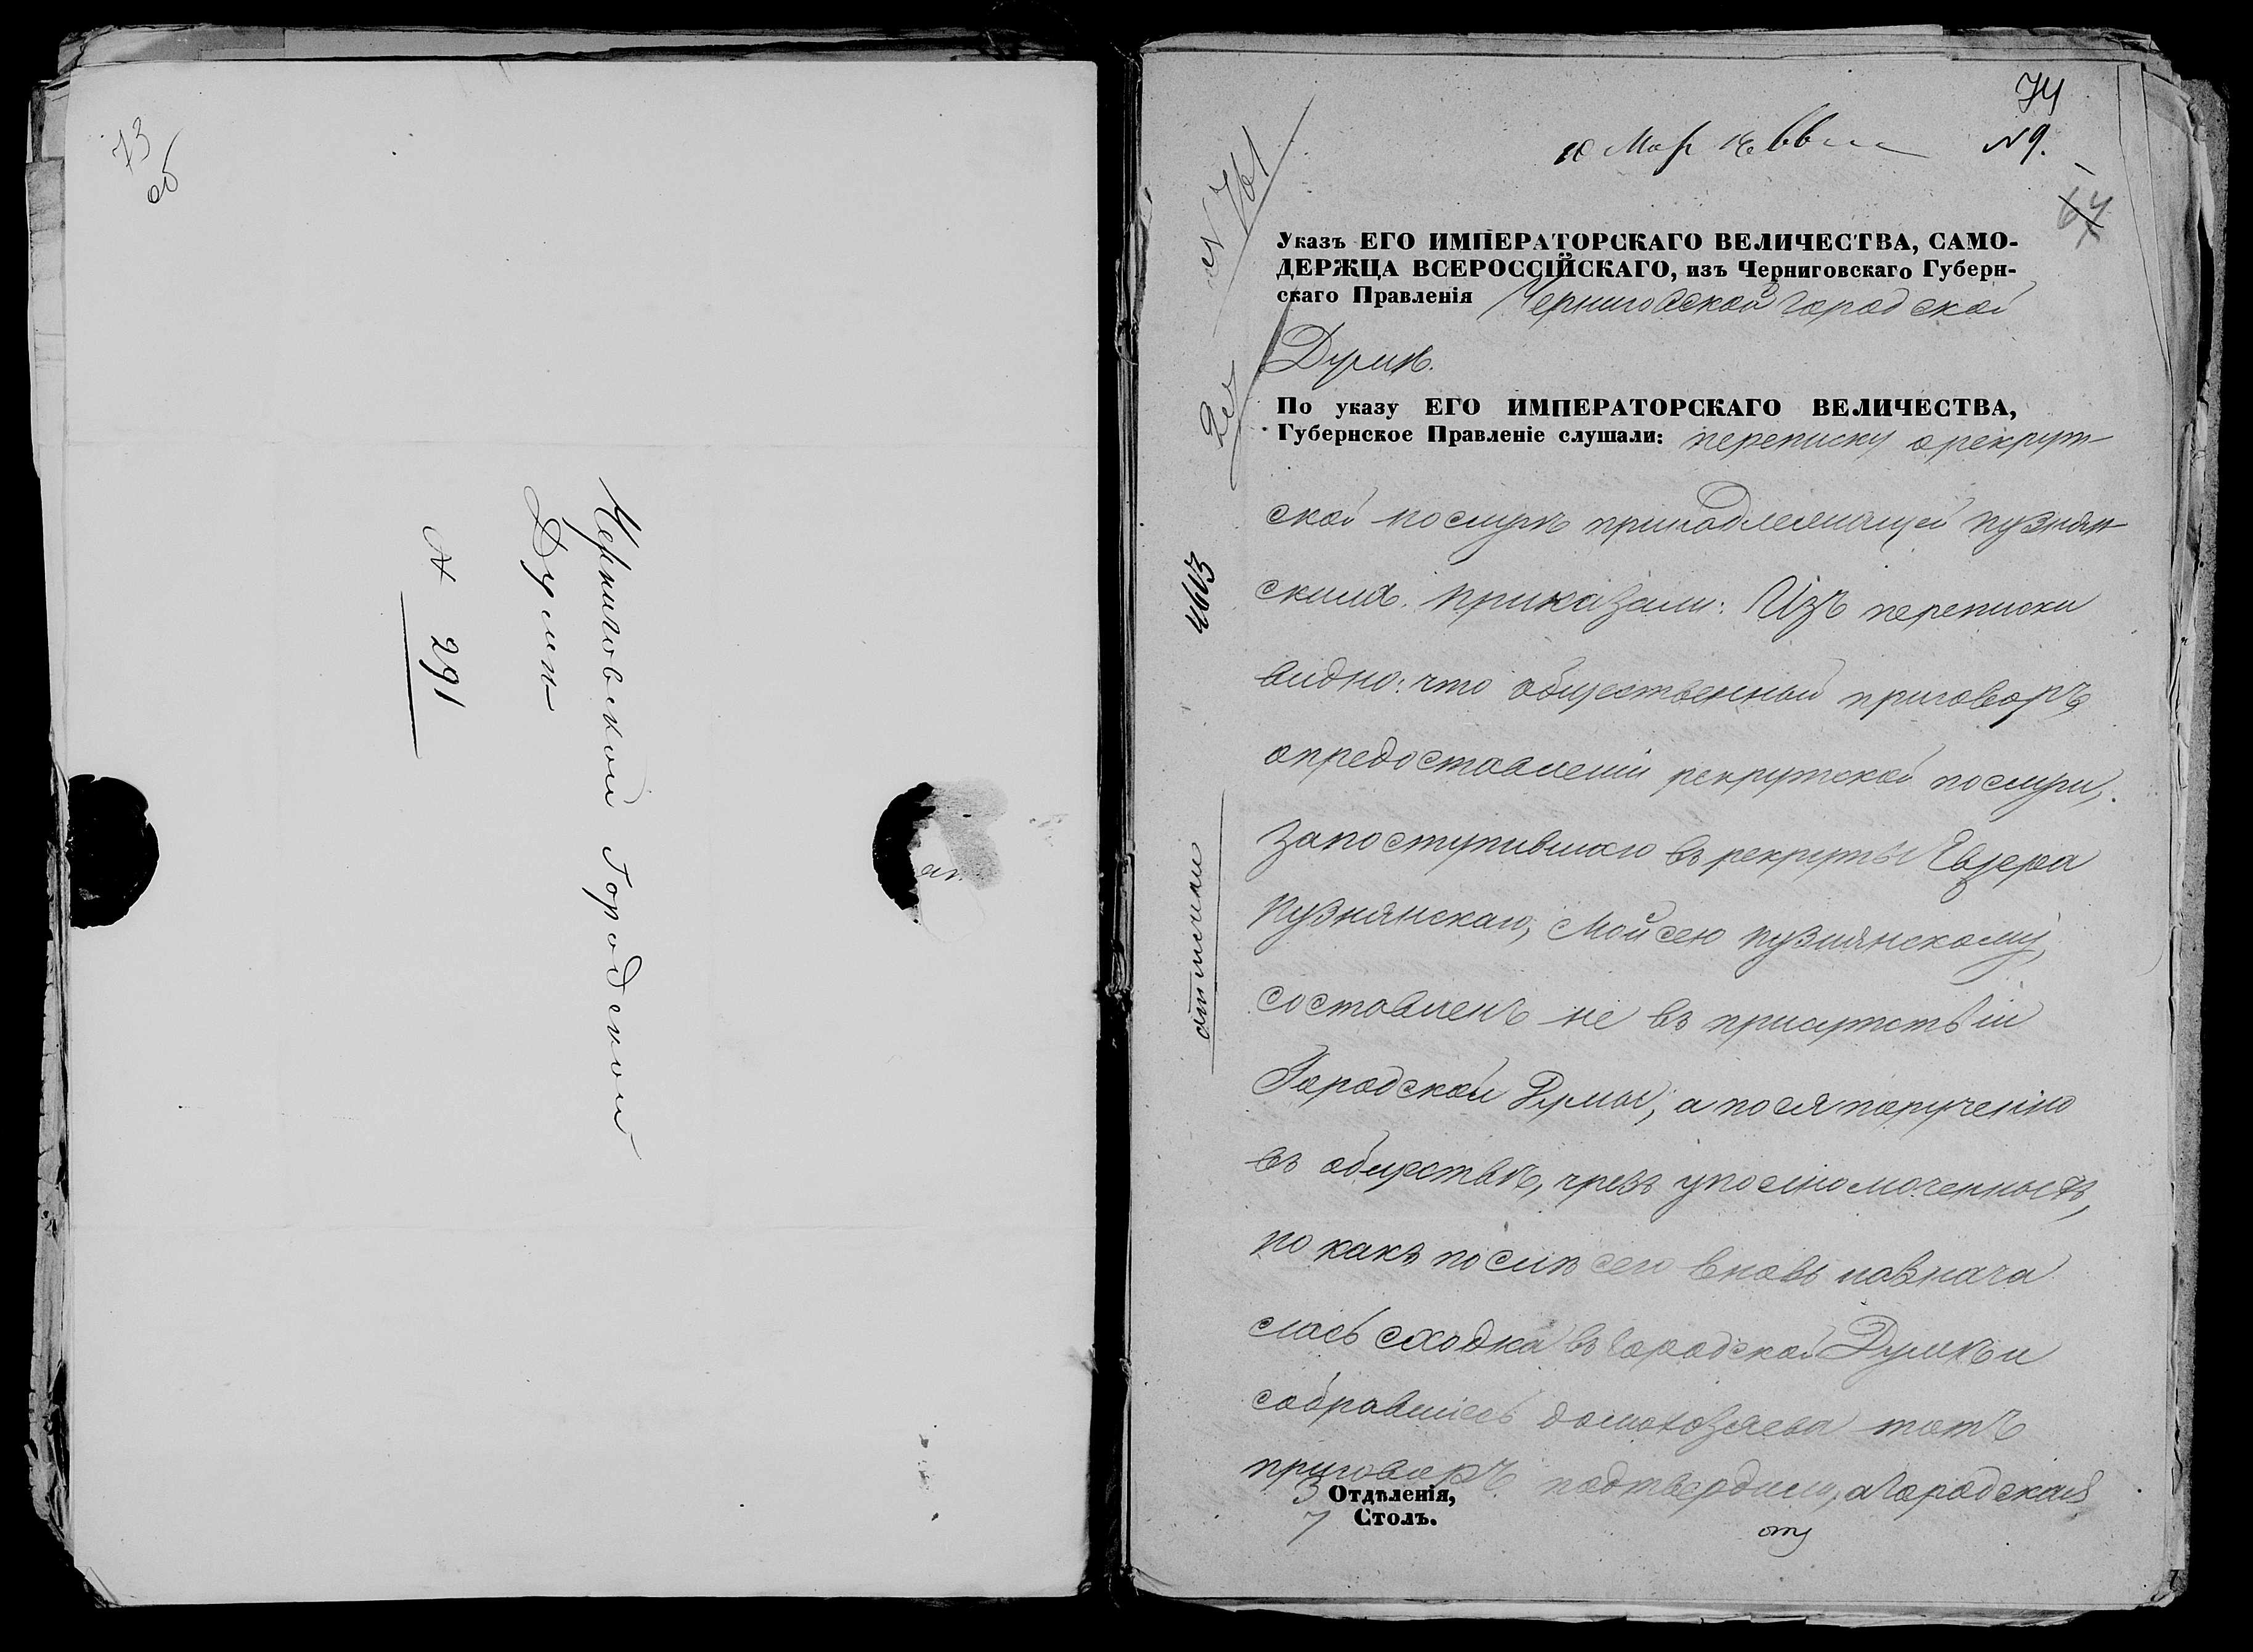 73
об
Черниговской Городской
Думѣ
№ 291
74
10 Мар 1866 №9.
64
№ 761
Указъ ЕГО ИМПЕРАТОРСКАГО ВЕЛИЧЕСТВА, САМО-
ДЕРЖЦА ВСЕРОССІЙСКАГО, изъ Черниговскаго Губерн-
скаго Правленія Черниговской городской
Думѣ.
По указу ЕГО ИМПЕРАТОРСКАГО ВЕЛИЧЕСТВА,
Губернское Правленіе слушали: переписку о рекрут-
ской послугѣ принадлежащей пузнян
скимъ. приказали: Изъ переписки
видно: что общественный приговоръ
о предоставленіи рекрутской послуги,
за поступившаго въ рекруты
Пузнянскаго, Мойсею пузнянскому,
составленъ не въ присутствіи
Городской Думы, а по ея порученію
въ обществѣ, чрезъ уполномоченныхъ,
но какъ послѣ сего вновь назнача
лась сходка въ городской Думѣ и
собравшіесь домохозяева тотъ
приговоръ подтвердили, а Городская
3 Отдѣленія,
7 Столъ.
4603